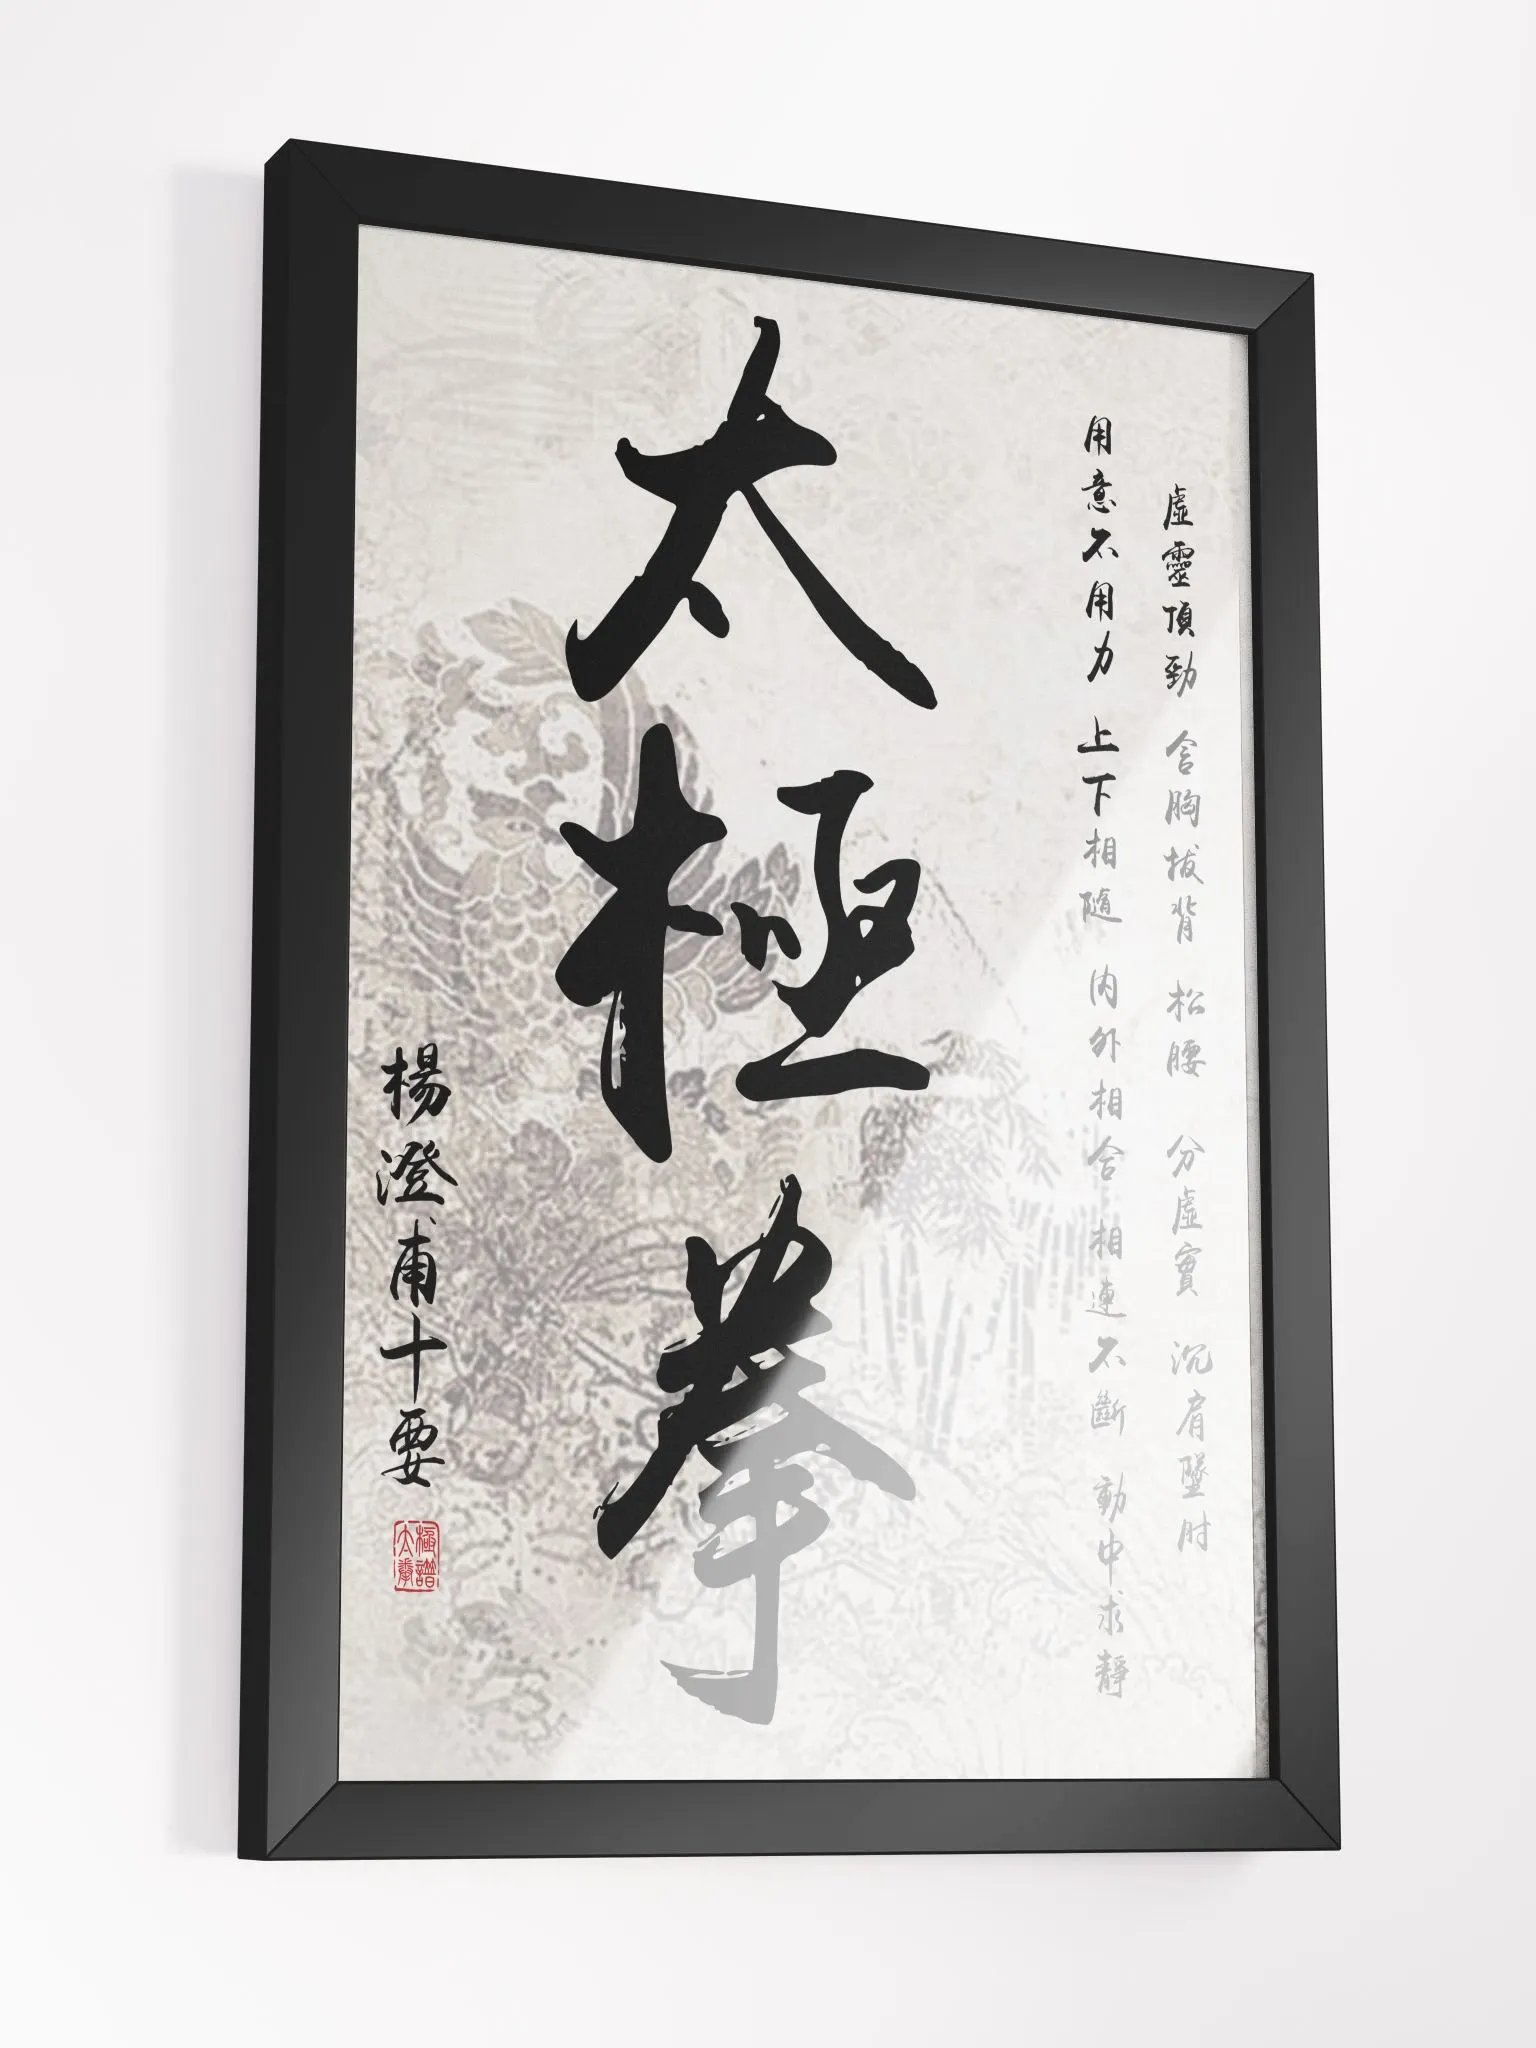 虛靈頂勁 含胸拔背 松腰 分虛實 沉肩墜肘
用意不用力 上下相隨 内外相合 相連不斷 動中求靜
太極拳
楊澄甫十要
極譜
太拳